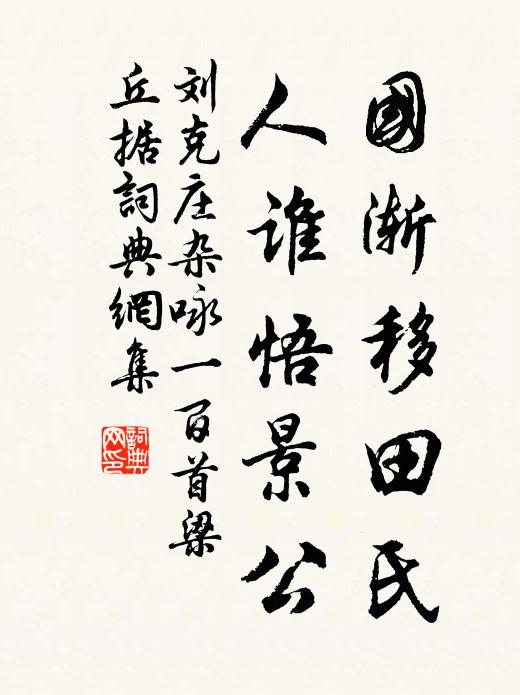 國渐移田氏
人谁悟景公
刘克庄杂咏一百首梁
丘据詞典網集
詞典
网印